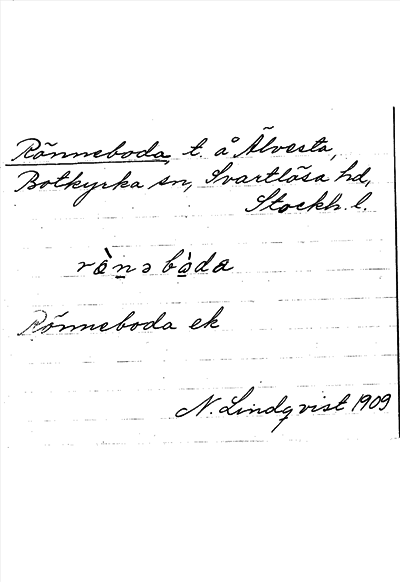 Rönneboda, t. å Älvesta,
Botkyrka sn, Svartlösa hd,
Stockh. l.
rò̤nə bò̤da
Rönneboda ek
N. Lindqvist 1909